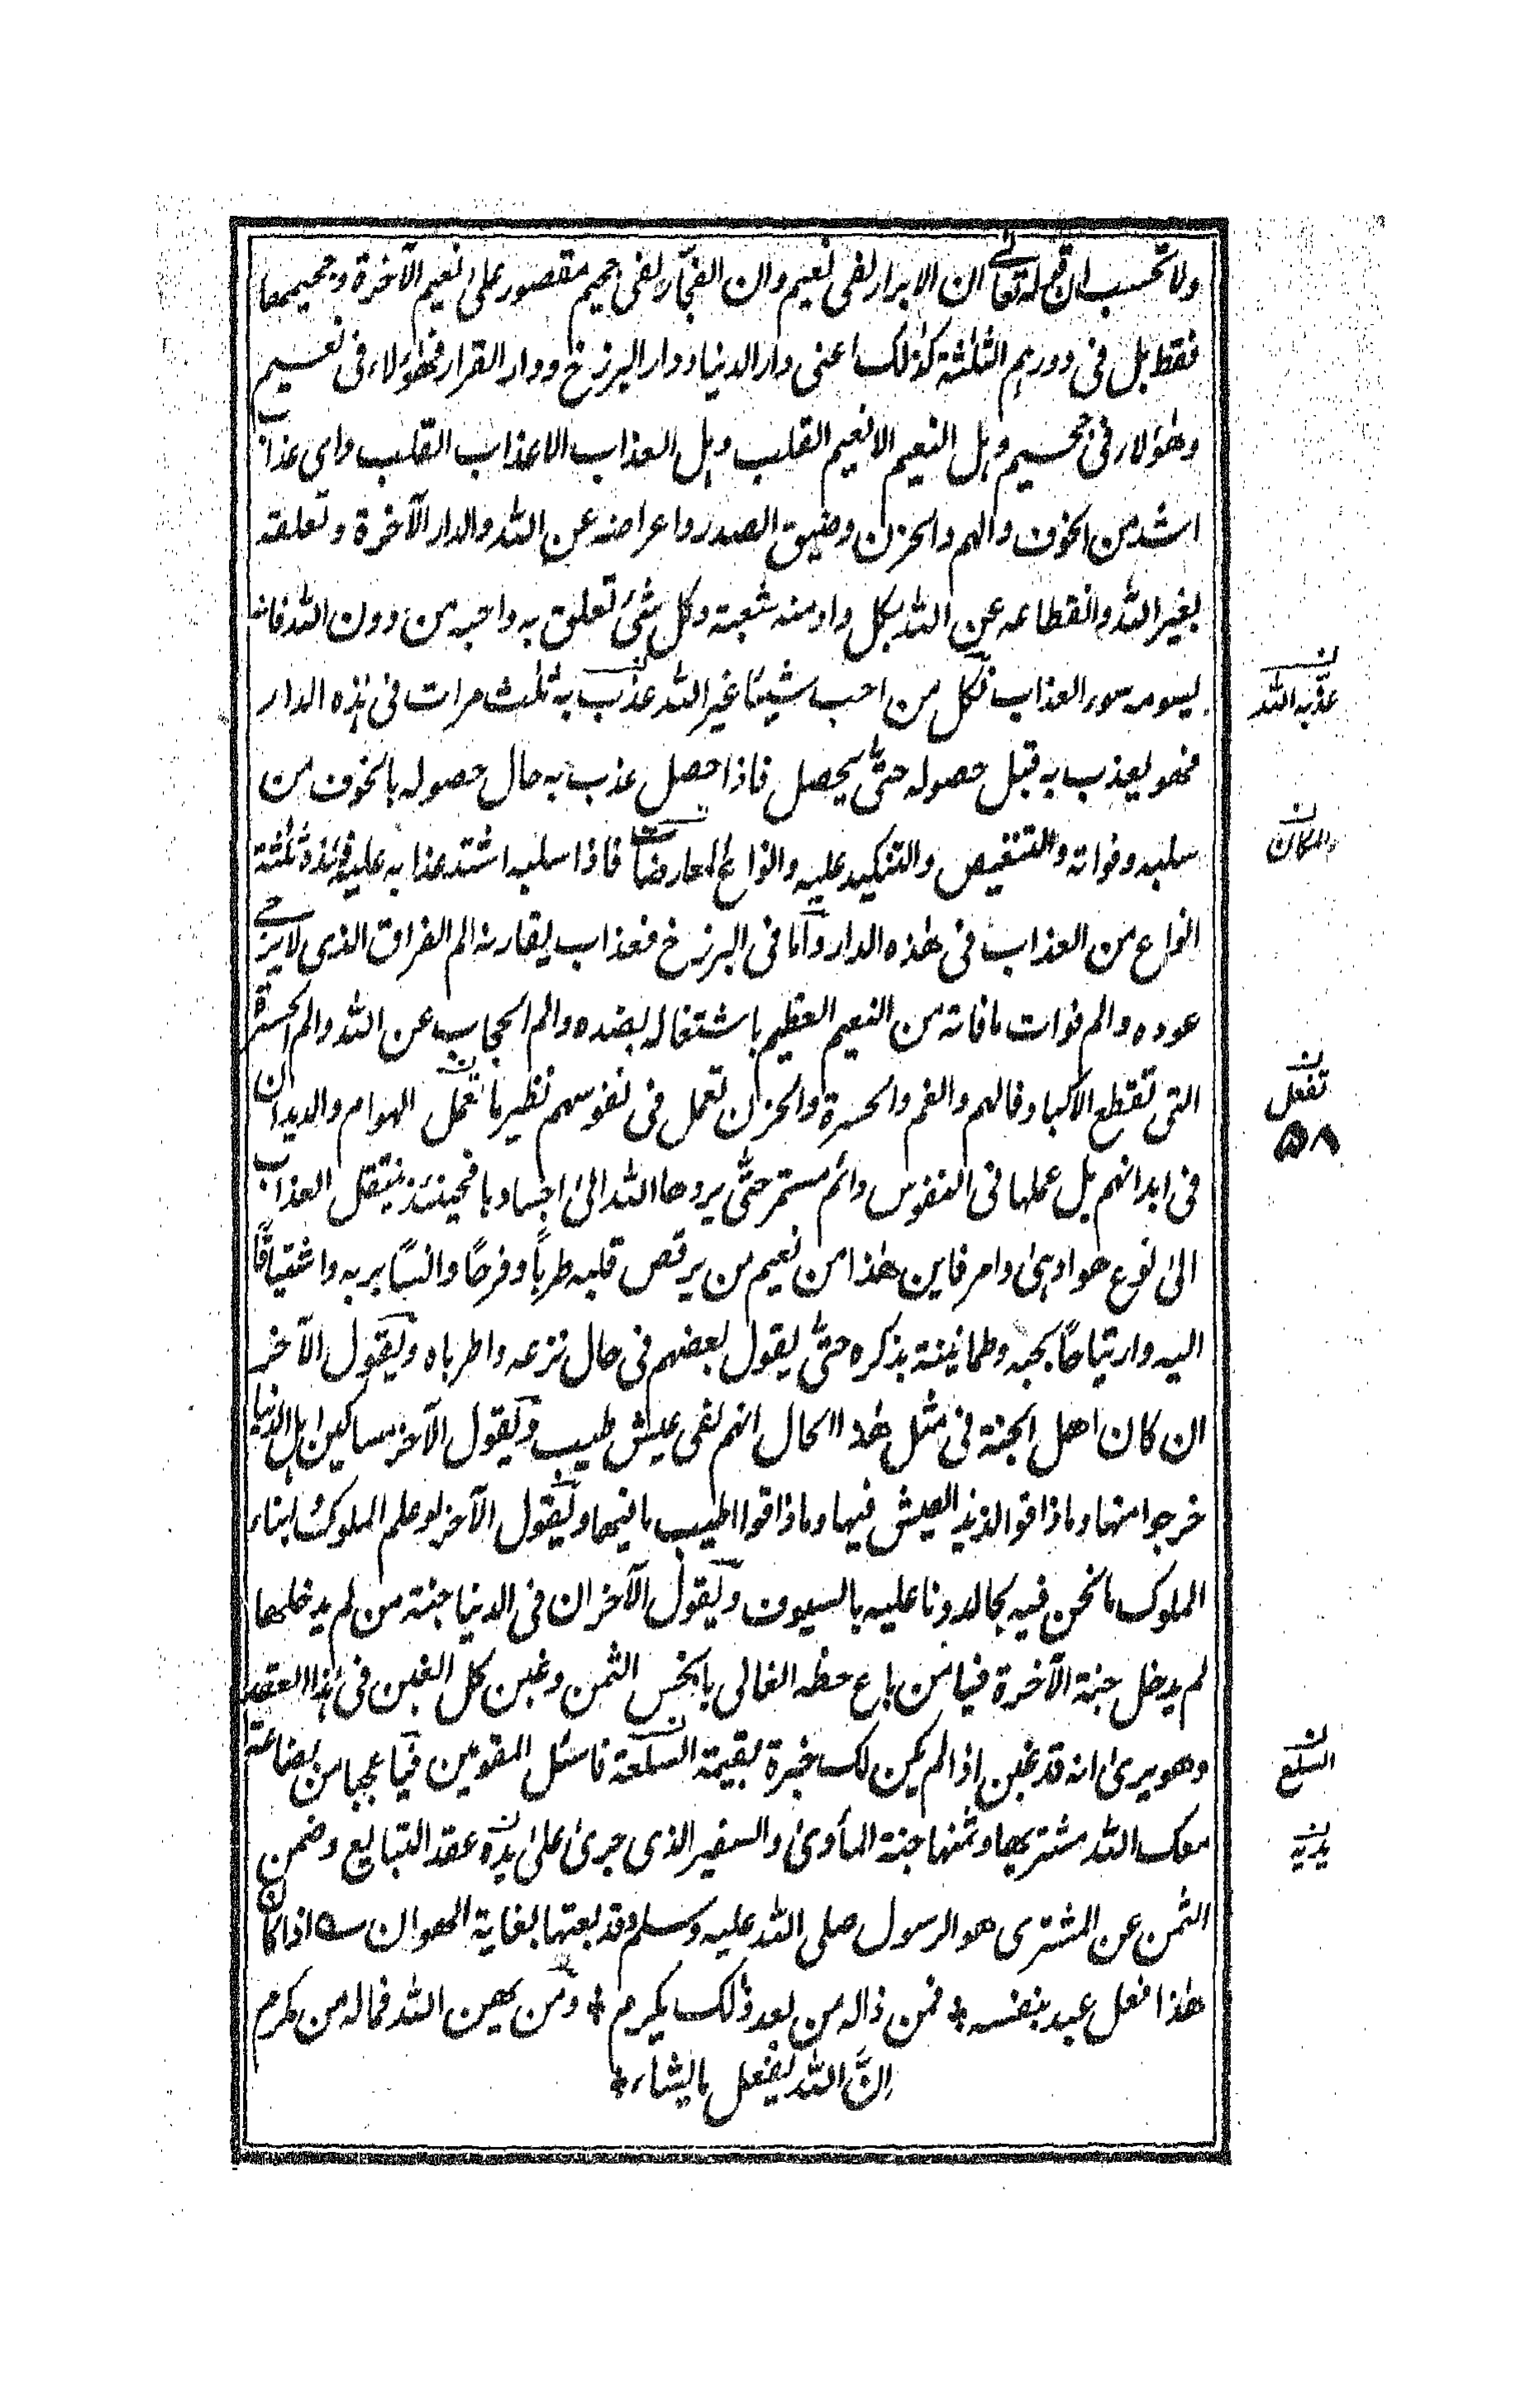 ولا تحسب ان قوله تعالى ان الابرار لفى نعيم وان الفجار لفى جحيم مقصور على نعيم الآخرة وجحيمها
فقط بل فى دورهم الثلثة كذلك اعنى دار الدنيا ودار البرزخ ودار القرار فهؤلاء فى نعيم
وهؤلاء فى جحيم وهل النعيم الا نعيم القلب وهل العذاب الا عذاب القلب واى عذاب
اشد من الخوف والهم والحزن وضيق الصدر واعراضه عن الله والدار الآخرة وتعلقه
بغير الله وانقطاعه عن الله بكل واد منه شعبة وكل شئ تعلق به واحبه من دون الله فانه
يسومه سوء العذاب فكل من احب شيئا غير الله عذب به ثلث مرات فى هذه الدار
عذبه الله
فهو يعذب به قبل حصوله حتى يحصل فاذا حصل عذب به حال حصوله بالخوف من
سلبه وفواته والتنغيص والتنكيد عليه وانواع المعارضات فاذا سلبه اشتد عذابه عليه فهذه ثلثة
والمكان
انواع من العذاب فى هذه الدار واما فى البرزخ فعذاب يقارنه الم الفراق الذى لا يرجى
عوده والم فوات ما فاته من النعيم العظيم باشتغاله بضده والم الحجاب عن الله والم الحسرة
التى تقطع الاكباد فالهم والغم والحسرة والحزن تعمل فى نفوسهم نظير ما تعمل الهوام والديدان
تفعل
٥٨
فى ابدانهم بل عملها فى النفوس دائم مستمر حتى يردها الله الى اجسادها فحينئذ ينتقل العذاب
الى نوع هو ادهى وامر فاين هذا من نعيم من يرقص قلبه طربًا وفرحًا وانسًا بربه واشتياقًا
اليه وارتياحًا بحبه وطمانينة بذكره حتى يقول بعضهم فى حال نزعه واطرباه ويقول الآخر
ان كان اهل الجنة فى مثل هذا الحال انهم لفى عيش طيب ويقول الآخر مساكين اهل الدنيا
خرجوا منها وما ذاقوا لذيذ العيش فيها وما ذاقوا اطيب ما فيها ويقول الآخر لو علم الملوك وابناء
الملوك ما نحن فيه لجالدونا عليه بالسيوف ويقول الآخر ان فى الدنيا جنة من لم يدخلها
لم يدخل جنة الآخرة فيا من باع حظه الغالى بابخس الثمن وغبن كل الغبن فى هذا العقد
وهو يرى انه قد غبن اذا لم يكن لك خبرة بقيمة السلعة فاسئل المقومين فيا عجبا من بضاعة
السلع
معك الله مشتريها وثمنها جنة المأوى والسفير الذى جرى على يده عقد التبايع وضمن
يديه
الثمن عن المشترى هو الرسول صلى الله عليه وسلم وقد بعتها بغاية الهوان ؎ اذا كان
هذا فعل عبد بنفسه * فمن ذا له من بعد ذلك يكرم * ومن يهن الله فما له من مكرم
ان الله يفعل ما يشاء *